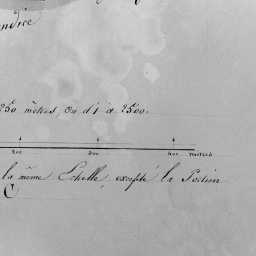 ndrée
250 mètres, ou d 1 à 2500.
200 300 400 mètres
la même Echelle, excepté la Portion
C